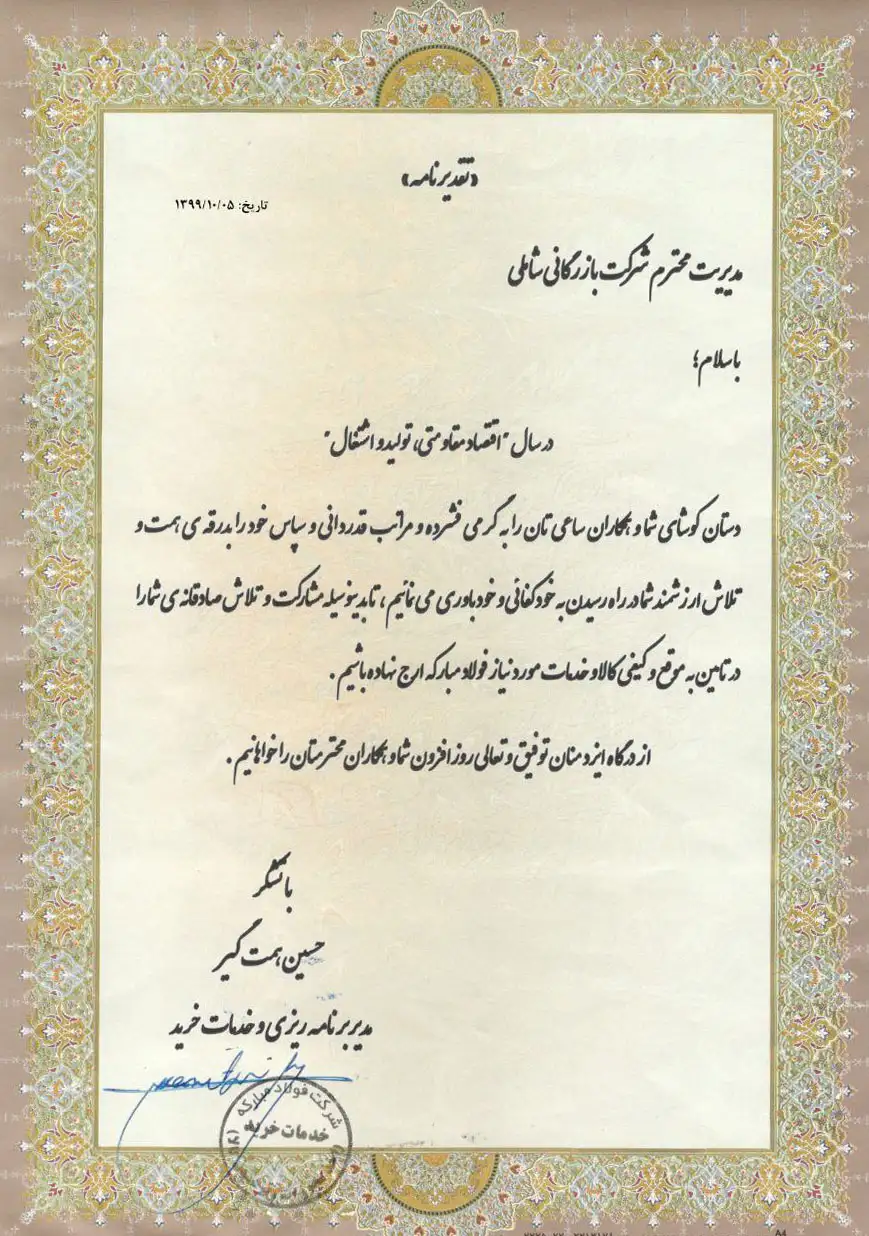 «تقدیرنامه»
تاریخ: ۱۳۹۹/۱۰/۰۵
مدیریت محترم شرکت بازرگانی شاملی
باسلام؛
در سال "اقتصاد مقاومتی، تولید و اشتغال"
دستان کوشای شما و همکاران ساعی تان را به گرمی فشرده و مراتب قدردانی و سپاس خود را بدرقه ی همت و
تلاش ارزشمند شما در راه رسیدن به خودکفائی و خودباوری می نمائیم، تا بدینوسیله مشارکت و تلاش صادقانه ی شما را
در تامین به موقع و کیفی کالا و خدمات مورد نیاز فولاد مبارکه ارج نهاده باشیم.
از درگاه ایزد منان توفیق و تعالی روزافزون شما و همکاران محترمتان را خواهانیم.
باتشکر
حسین همت گیر
مدیر برنامه ریزی و خدمات خرید
شرکت فولاد مبارکه
خدمات خرید